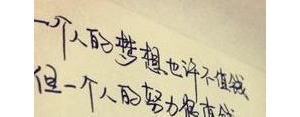 一个人的梦想也许不值钱
但一个人的努力很值钱